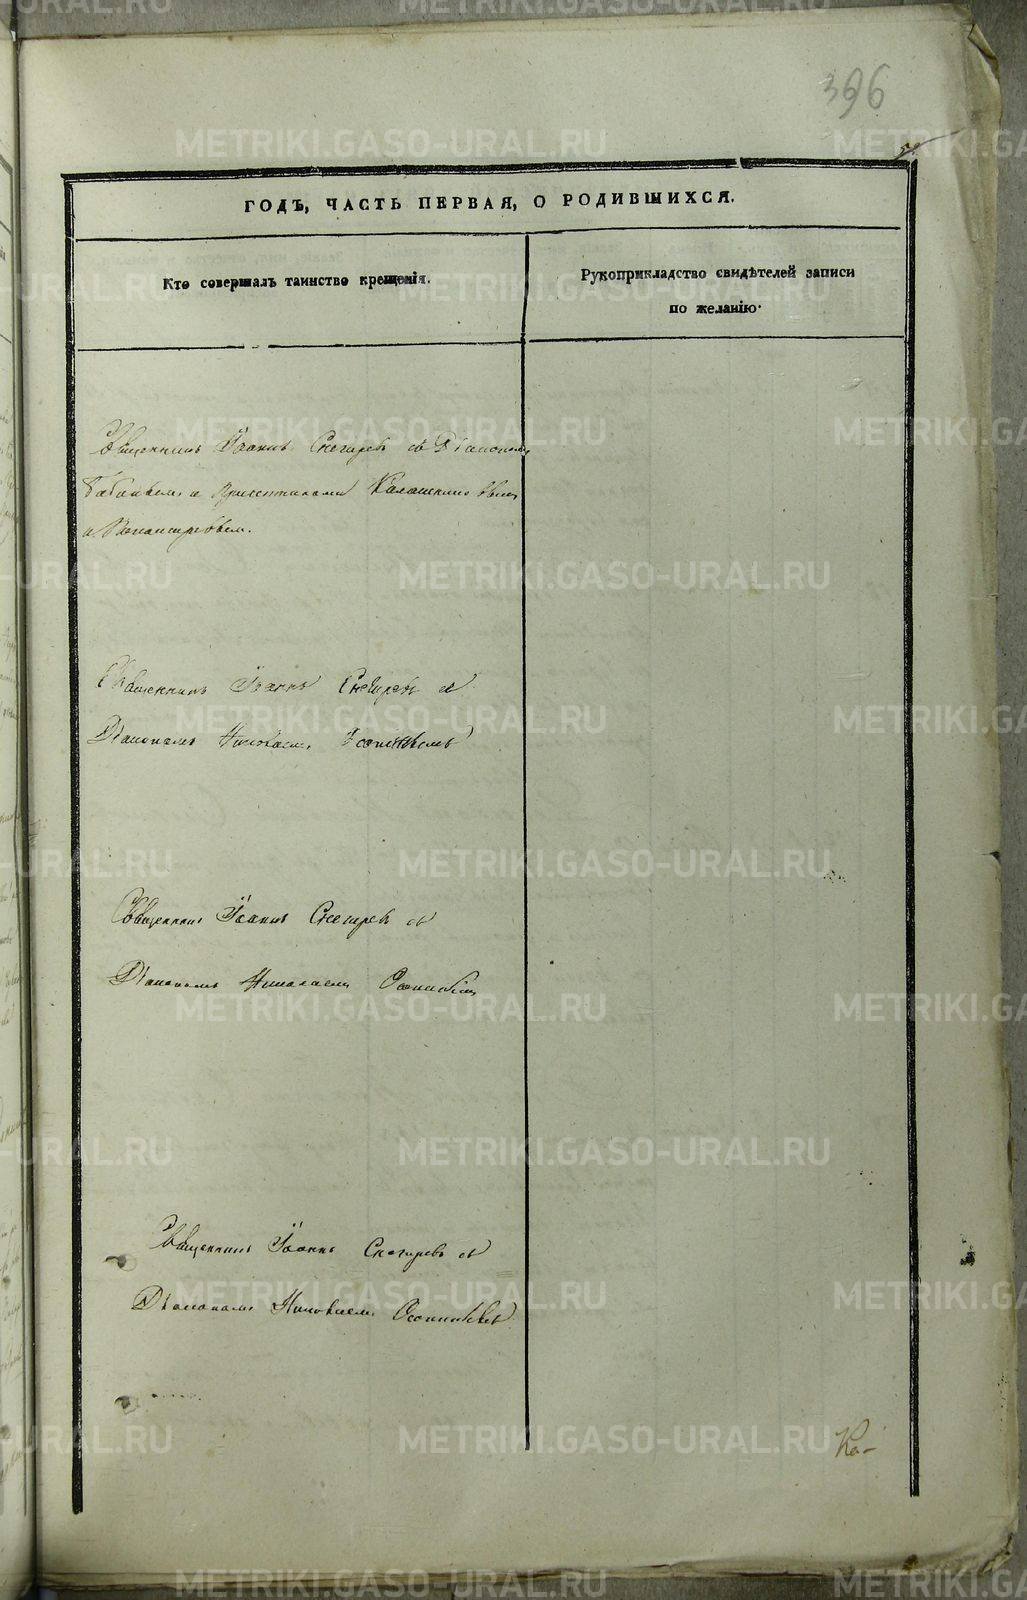 396
ГОДЪ, ЧАСТЬ ПЕРВАЯ, О РОДИВШИХСЯ.
Кто совершалъ таинство крещенія.
Рукоприкладство свидѣтелей записи
по желанію.
Священникъ Іоаннъ Снегиревъ съ Діакономъ
и причетниками
и
Священникъ Іоаннъ Снегиревъ съ
Діакономъ Николаемъ
Священникъ Іоаннъ Снегиревъ съ
Діакономъ Николаемъ
Священникъ Іоаннъ Снегиревъ съ
Діакономъ Николаемъ
Ка-
METRIKI.GASO-URAL.RU